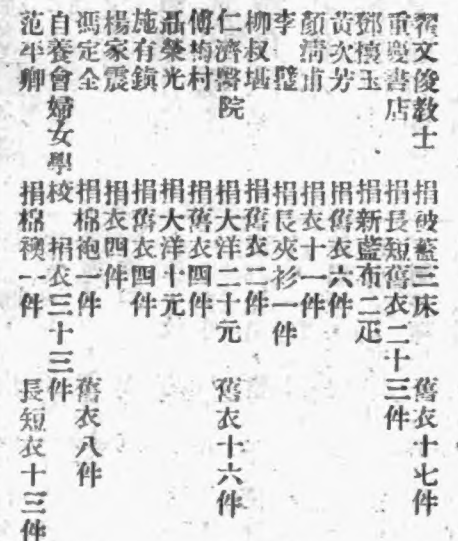 翟文俊教士　捐破藍三床　舊衣十七件
重慶書店　捐長短舊衣二十三件
鄧懷玉　捐新藍布二疋
黃次芳　捐舊衣六件
顏清甫　捐衣十一件
李　捐長夾衫一件
柳叔堪　捐舊衣二件
仁濟醫院　捐大洋二十元　舊衣十六件
傅梅村　捐舊衣四件
聶榮光　捐大洋十元
施有鎮　捐舊衣四件
楊家震　捐衣四件
馮定全　捐棉袍一件　舊衣八件
自養會婦女學校　捐衣三十三件
范平卿　捐棉襖一件　長短衣十三件